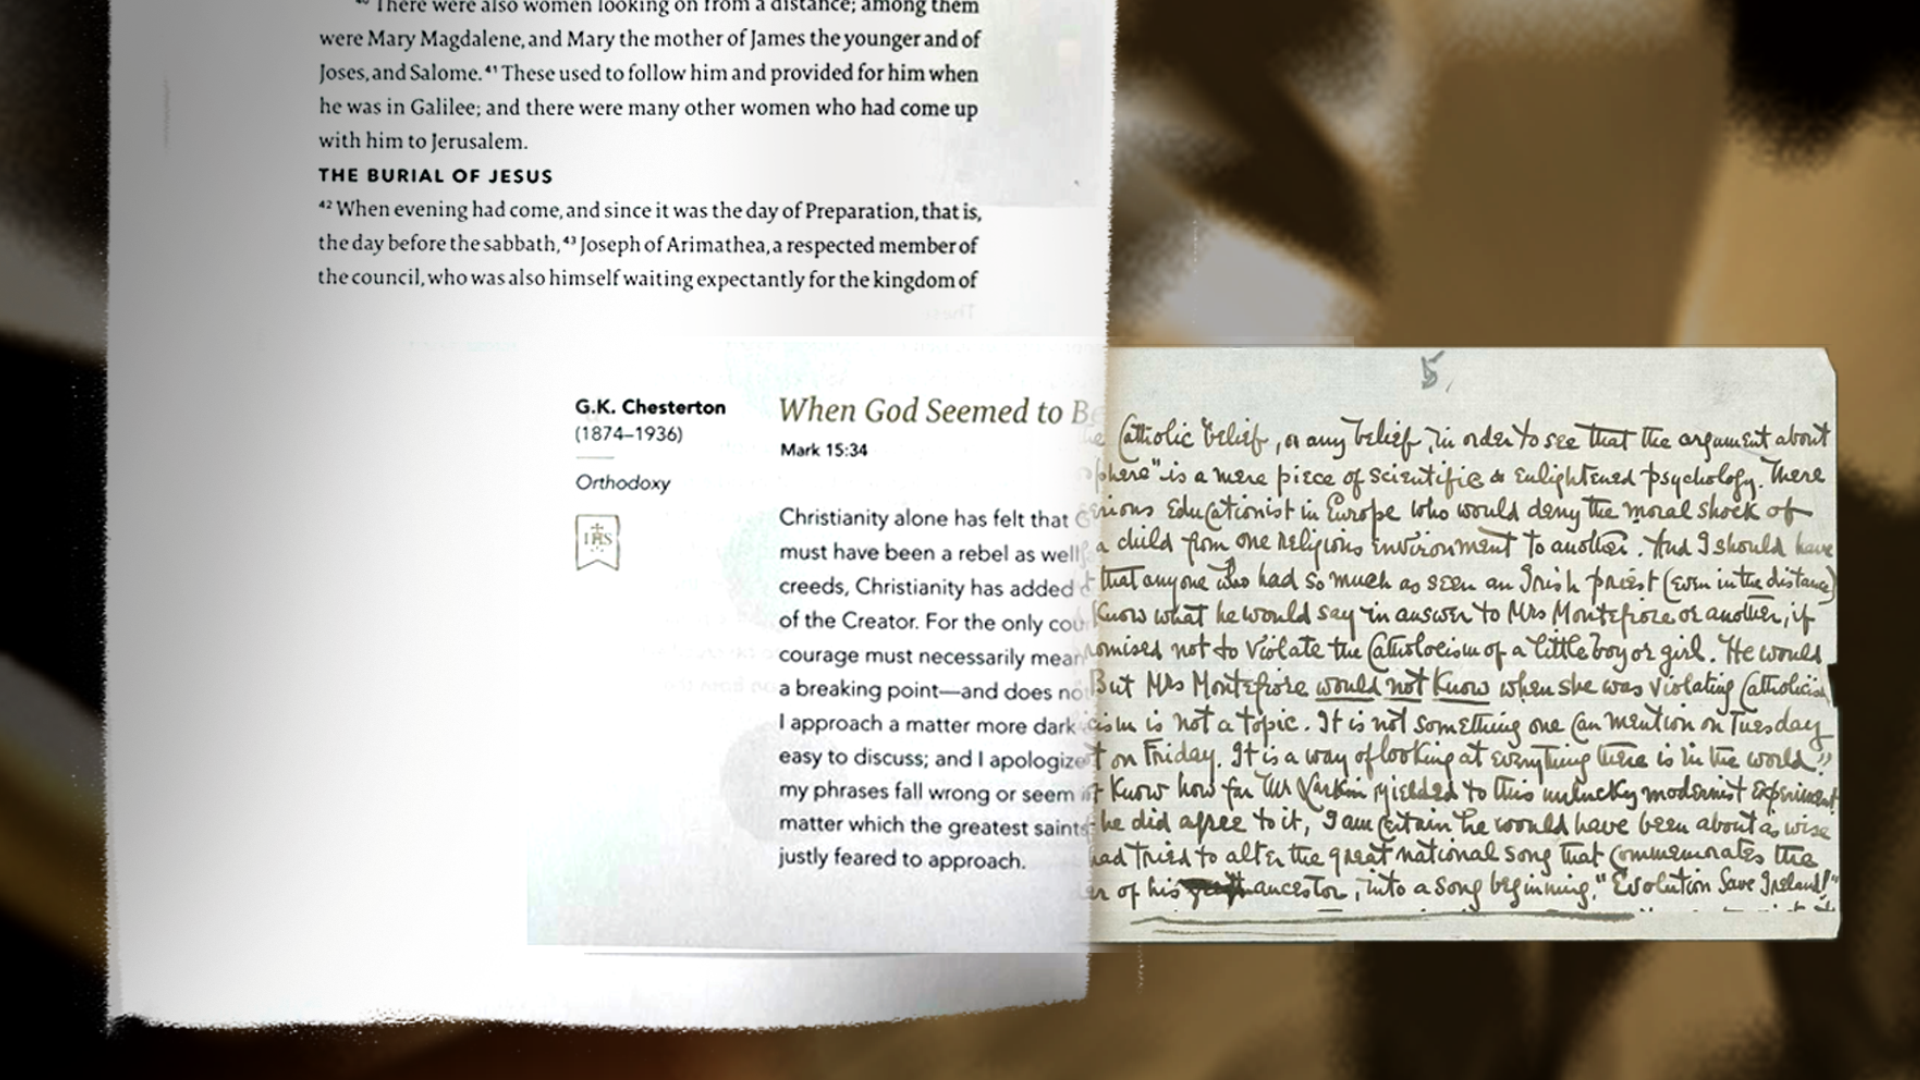 ⁴⁰ There were also women looking on from a distance; among them
were Mary Magdalene, and Mary the mother of James the younger and of
Joses, and Salome. ⁴¹ These used to follow him and provided for him when
he was in Galilee; and there were many other women who had come up
with him to Jerusalem.
THE BURIAL OF JESUS
⁴² When evening had come, and since it was the day of Preparation, that is,
the day before the sabbath, ⁴³ Joseph of Arimathea, a respected member of
the council, who was also himself waiting expectantly for the kingdom of
G.K. Chesterton
(1874–1936)
Orthodoxy
IHS
When God Seemed to
Mark 15:34
Christianity alone has felt that
must have been a rebel as well
creeds, Christianity has added
of the Creator. For the only
courage must necessarily mean
a breaking point—and does
I approach a matter more dark
easy to discuss; and I apologize
my phrases fall wrong or seem
matter which the greatest saints
justly feared to approach.
5,
Catholic belief, or any belief, in order to see that the argument about
is a mere piece of scientific & enlightened psychology. There
Educationist in Europe who would deny the moral shock of
a child from one religious environment to another. And I should have
that anyone who had so much as seen an Irish priest (even in the distance)
know what he would say in answer to Mrs Montefiore or another, if
not to violate the Catholocism of a little boy or girl. He would
But Mrs Montefiore would not know when she was violating
is not a topic. It is not something one can mention on Tuesday
on Friday. It is a way of looking at everything there is in the world."
know how far Mr Larkin yielded to this unlucky modernist experiment
he did agree to it, I am certain he would have been about as wise
had tried to alter the great national song that commemorates the
of his ancestor, into a song beginning, "Evolution Save Ireland!"